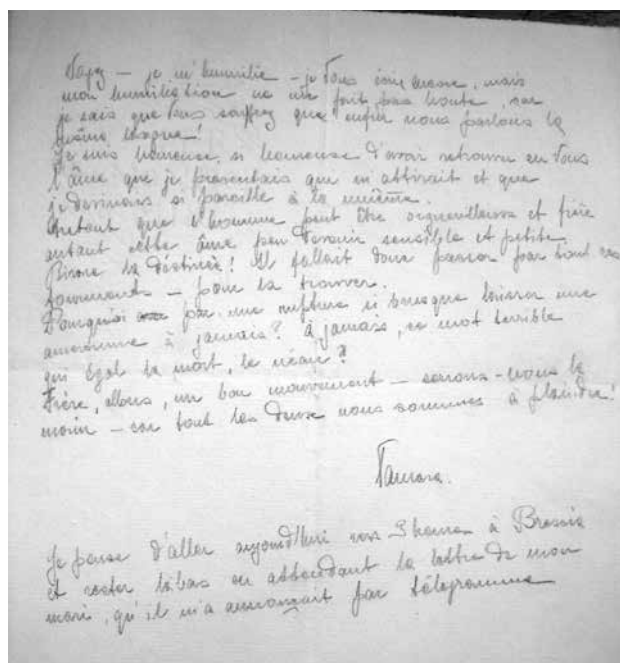 Voyez — je m'humilie — je vous implore, mais
mon humiliation ne me fait pas honte, car
je sais que vous souffrez que enfin nous parlons la
même langue!
Je suis heureuse, si heureuse d'avoir retrouvé en vous
l'âme que je pressentais que m'attirait et que
je devinais si pareille à la mienne.
Autant que l'homme peut être orgueilleuse et fière
autant cette âme peu devenir sensible et petite.
Bizare la déstinée! Il fallait donc passer par tout ces
tourments — pour la trouver.
Pourquoi par une rupture si brusque laisser une
amertume à jamais? à jamais, ce mot terrible
qui égal la mort, le néant?
Frère, allons, un bon mouvement — serrons-nous la
main — car tout les deux nous sommes à plaindre!
Tamara.
Je pense d'aller aujourd'hui vers 3 heures à Brescia
et rester labas en attendant la lettre de mon
mari, qu'il m'a annonçait par télégramme